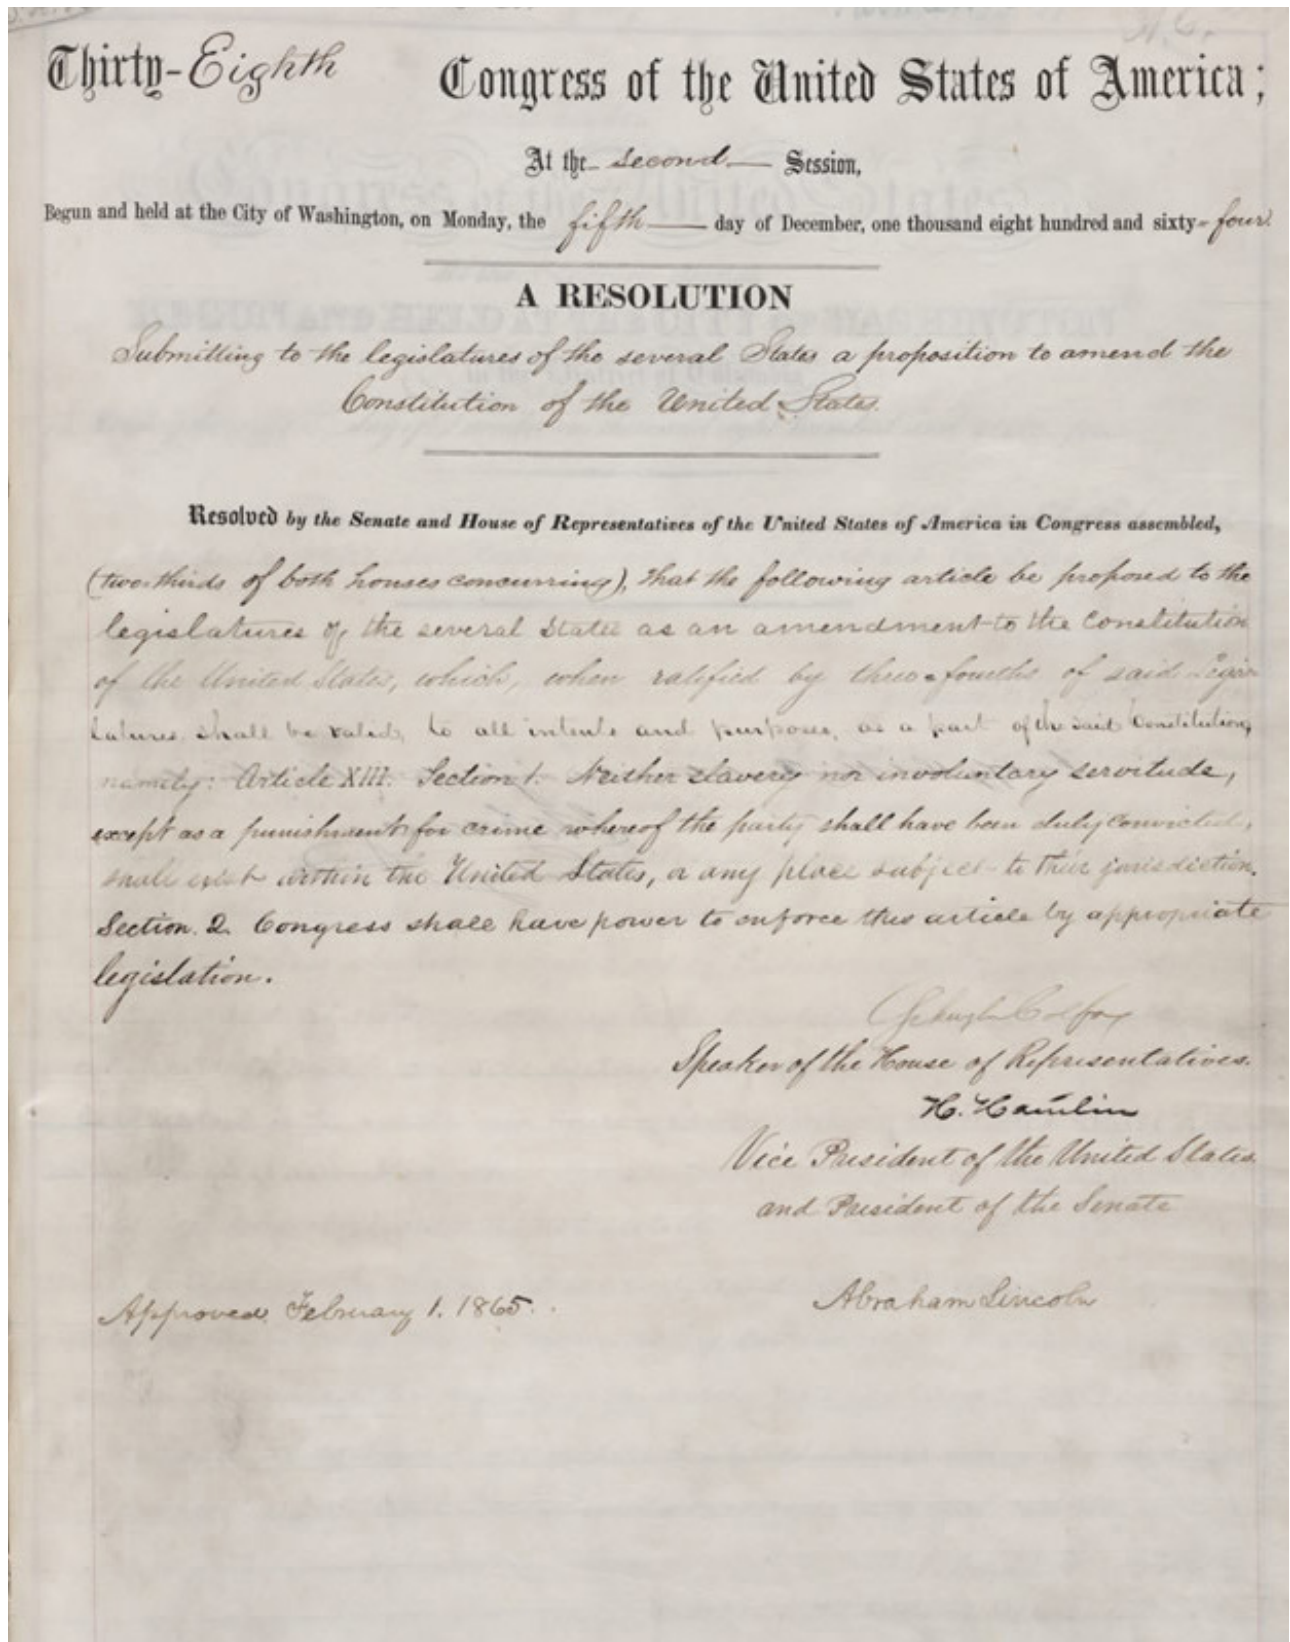 Thirty-Eighth Congress of the United States of America;
At the second Session,
Begun and held at the City of Washington, on Monday, the fifth day of December, one thousand eight hundred and sixty-four.
A RESOLUTION
Submitting to the legislatures of the several States a proposition to amend the
Constitution of the United States.
Resolved by the Senate and House of Representatives of the United States of America in Congress assembled,
(two-thirds of both houses concurring), that the following article be proposed to the
legislatures of the several States as an amendment to the Constitution
of the United States, which, when ratified by three-fourths of said Legis-
latures shall be valid, to all intents and purposes, as a part of the said Constitution,
namely: Article XIII. Section 1. Neither slavery nor involuntary servitude,
except as a punishment for crime whereof the party shall have been duly convicted,
shall exist within the United States, or any place subject to their jurisdiction.
Section. 2. Congress shall have power to enforce this article by appropriate
legislation.
Schuyler Colfax
Speaker of the House of Representatives.
H. Hamlin
Vice President of the United States.
and President of the Senate
Approved, February 1. 1865. Abraham Lincoln